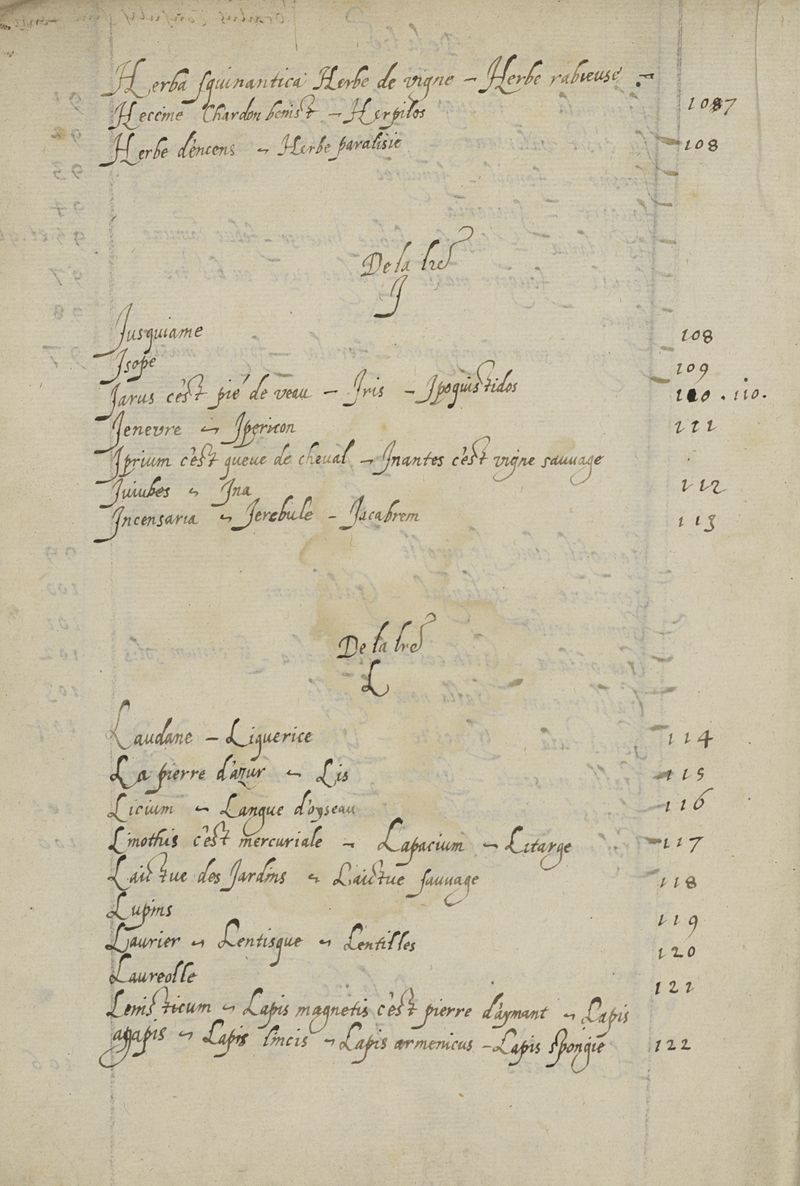 Herba squinantica Herbe de vigne – Herbe rabieuse –
Heccine Chardon benist – Herpilos 1087
Herbe d'encens ~ Herbe paralisie 108
De la lre
J
Jusquiame 108
Jsope 109
Jarus c'est pié de veau – Jris – Jpoquistidos 110 . 110.
Jenevre ~ Jpericon 111
Jprium c'est queue de cheval – Jnantes c'est vigne sauuage
Juiubes ~ Jna 112
Jncensaria ~ Jerebule – Jacabrem 113
De la lre
L
Laudane – Liguerice 114
La pierre d'azur ~ Lis 115
Licium ~ Langue d'oyseau 116
Limothis c'est mercuriale – Lapacium ~ Litarge 117
Laictue des Jardins ~ Laictue sauuage 118
Lupins 119
Laurier ~ Lentisque ~ Lentilles 120
Laureolle 121
Lenisticum ~ Lapis magnetis c'est pierre d'aymant ~ Lapis
agapis ~ Lapis lincis ~ Lapis armenicus – Lapis spongie 122